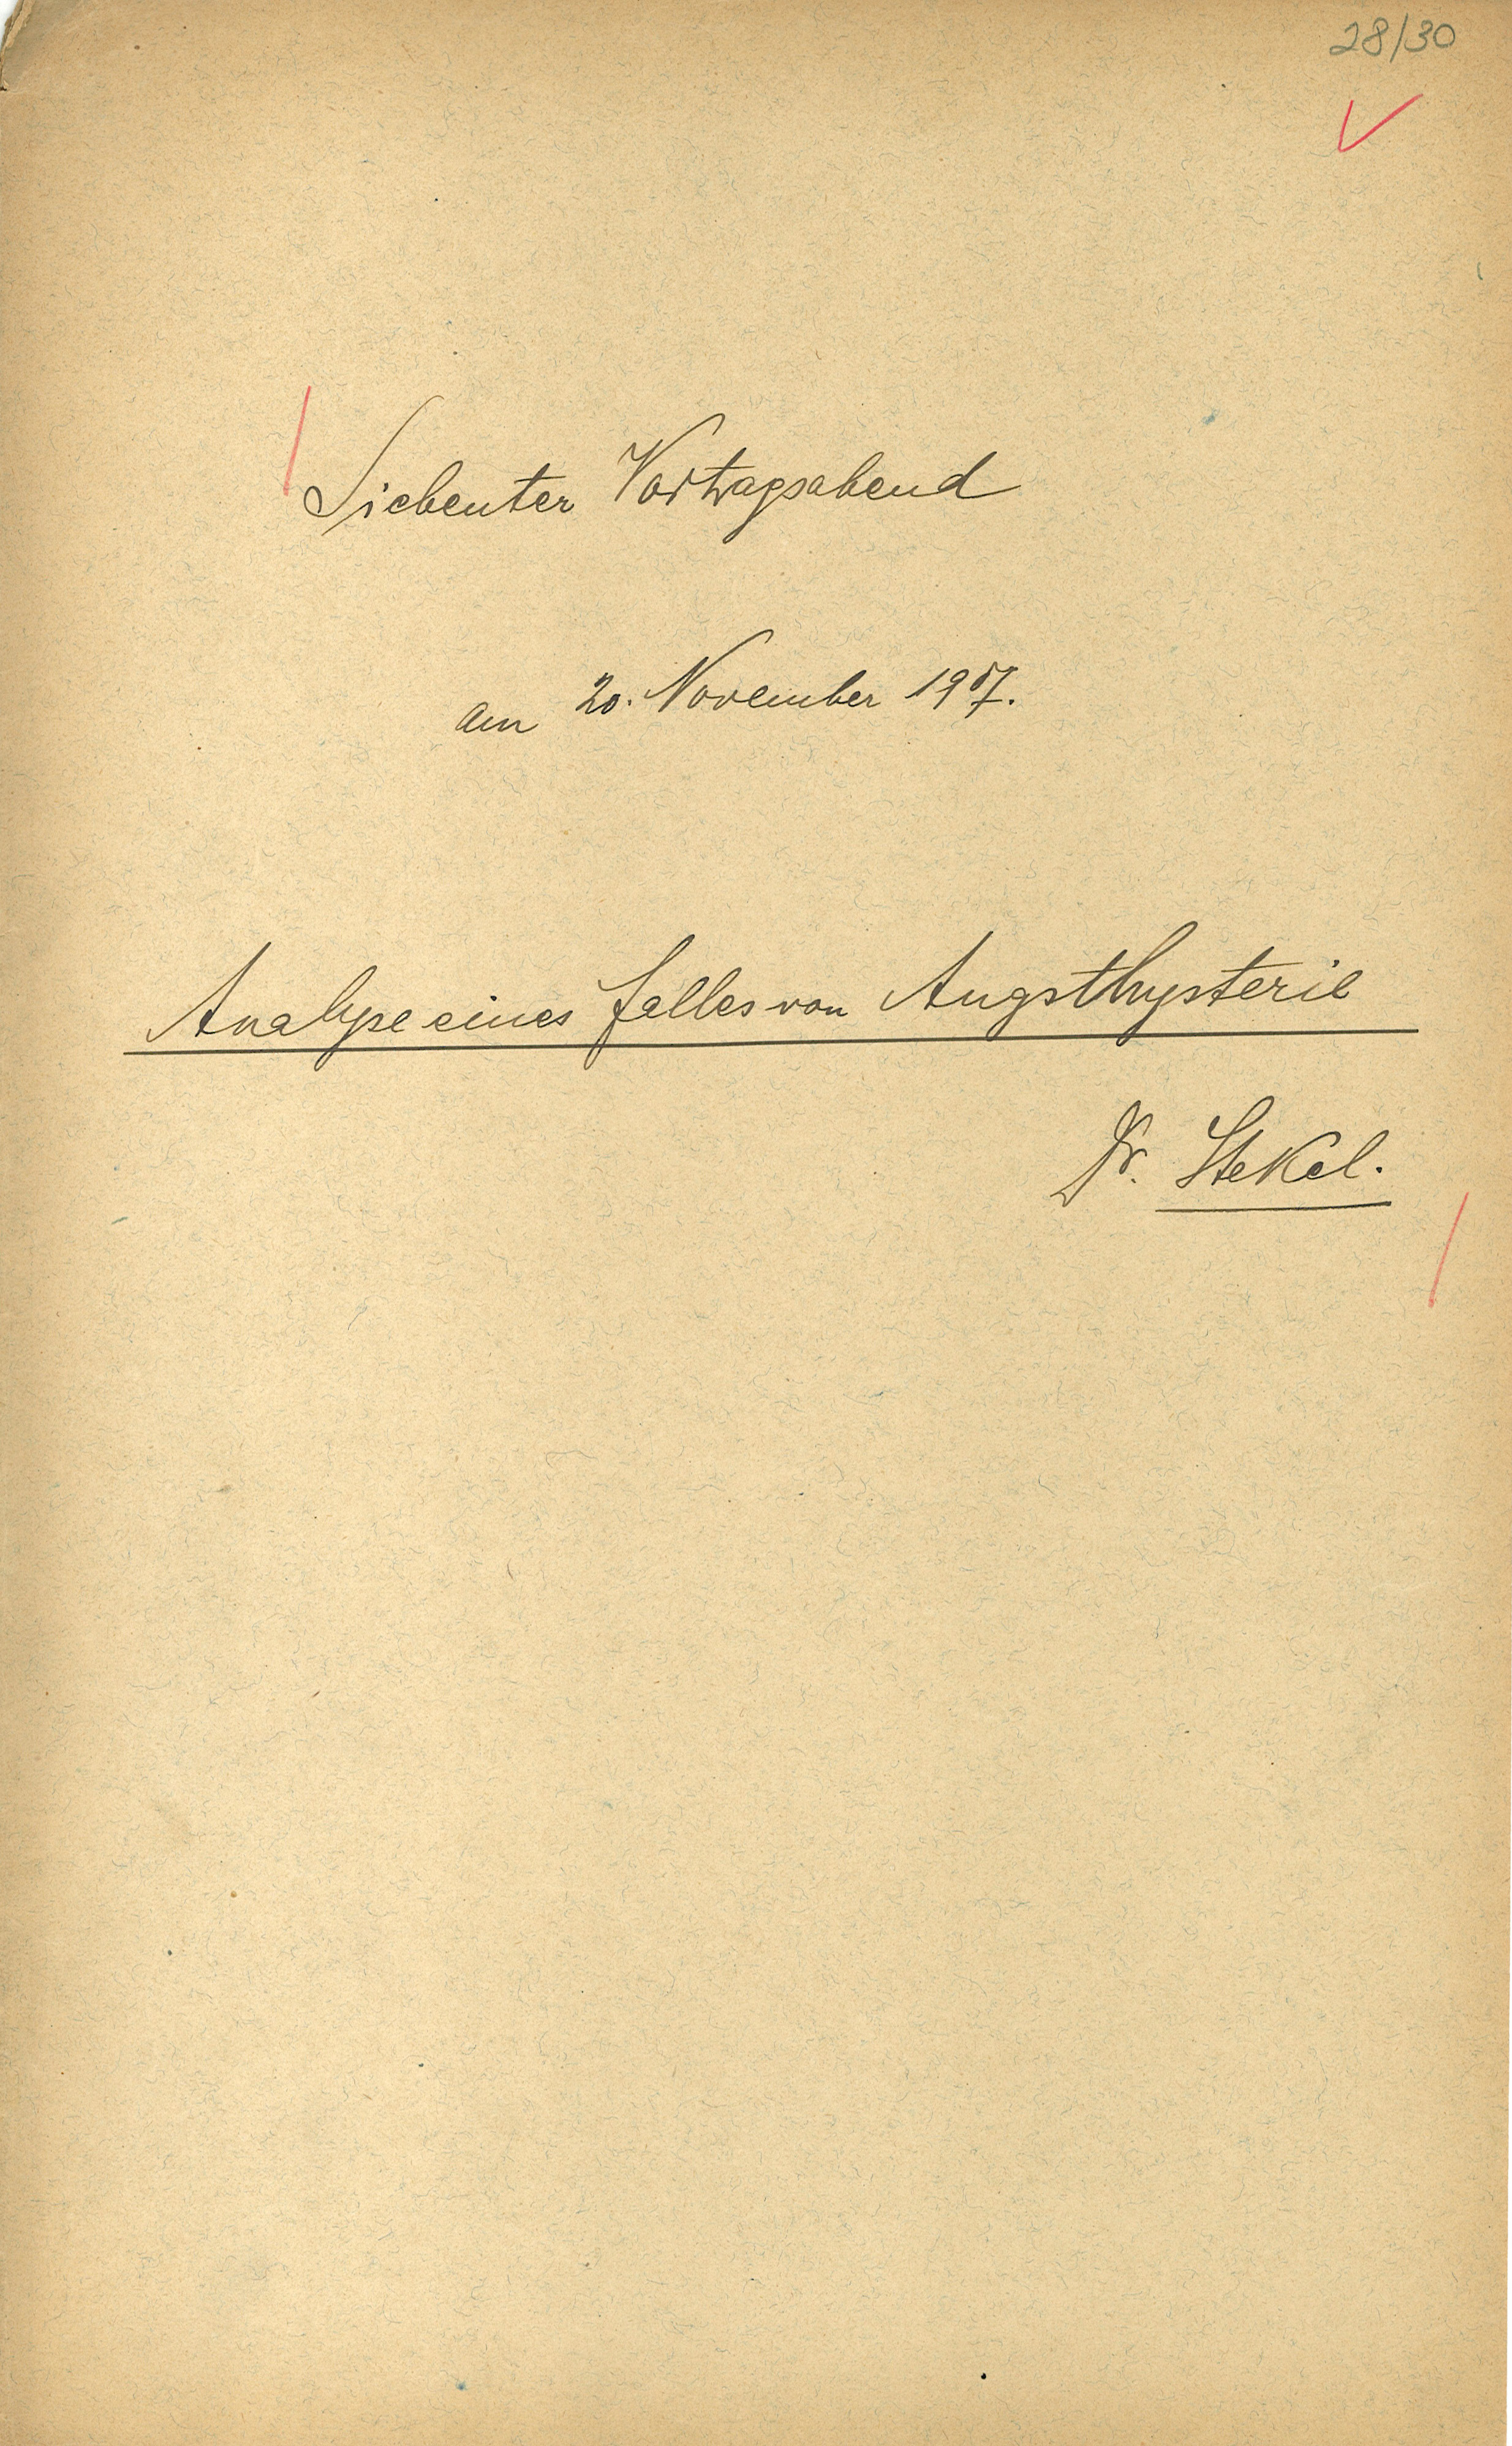 28/30
Siebenter Vortragsabend
am 20. November 1907.
Analyse eines Falles von Angsthysterie
Dr. Stekel.